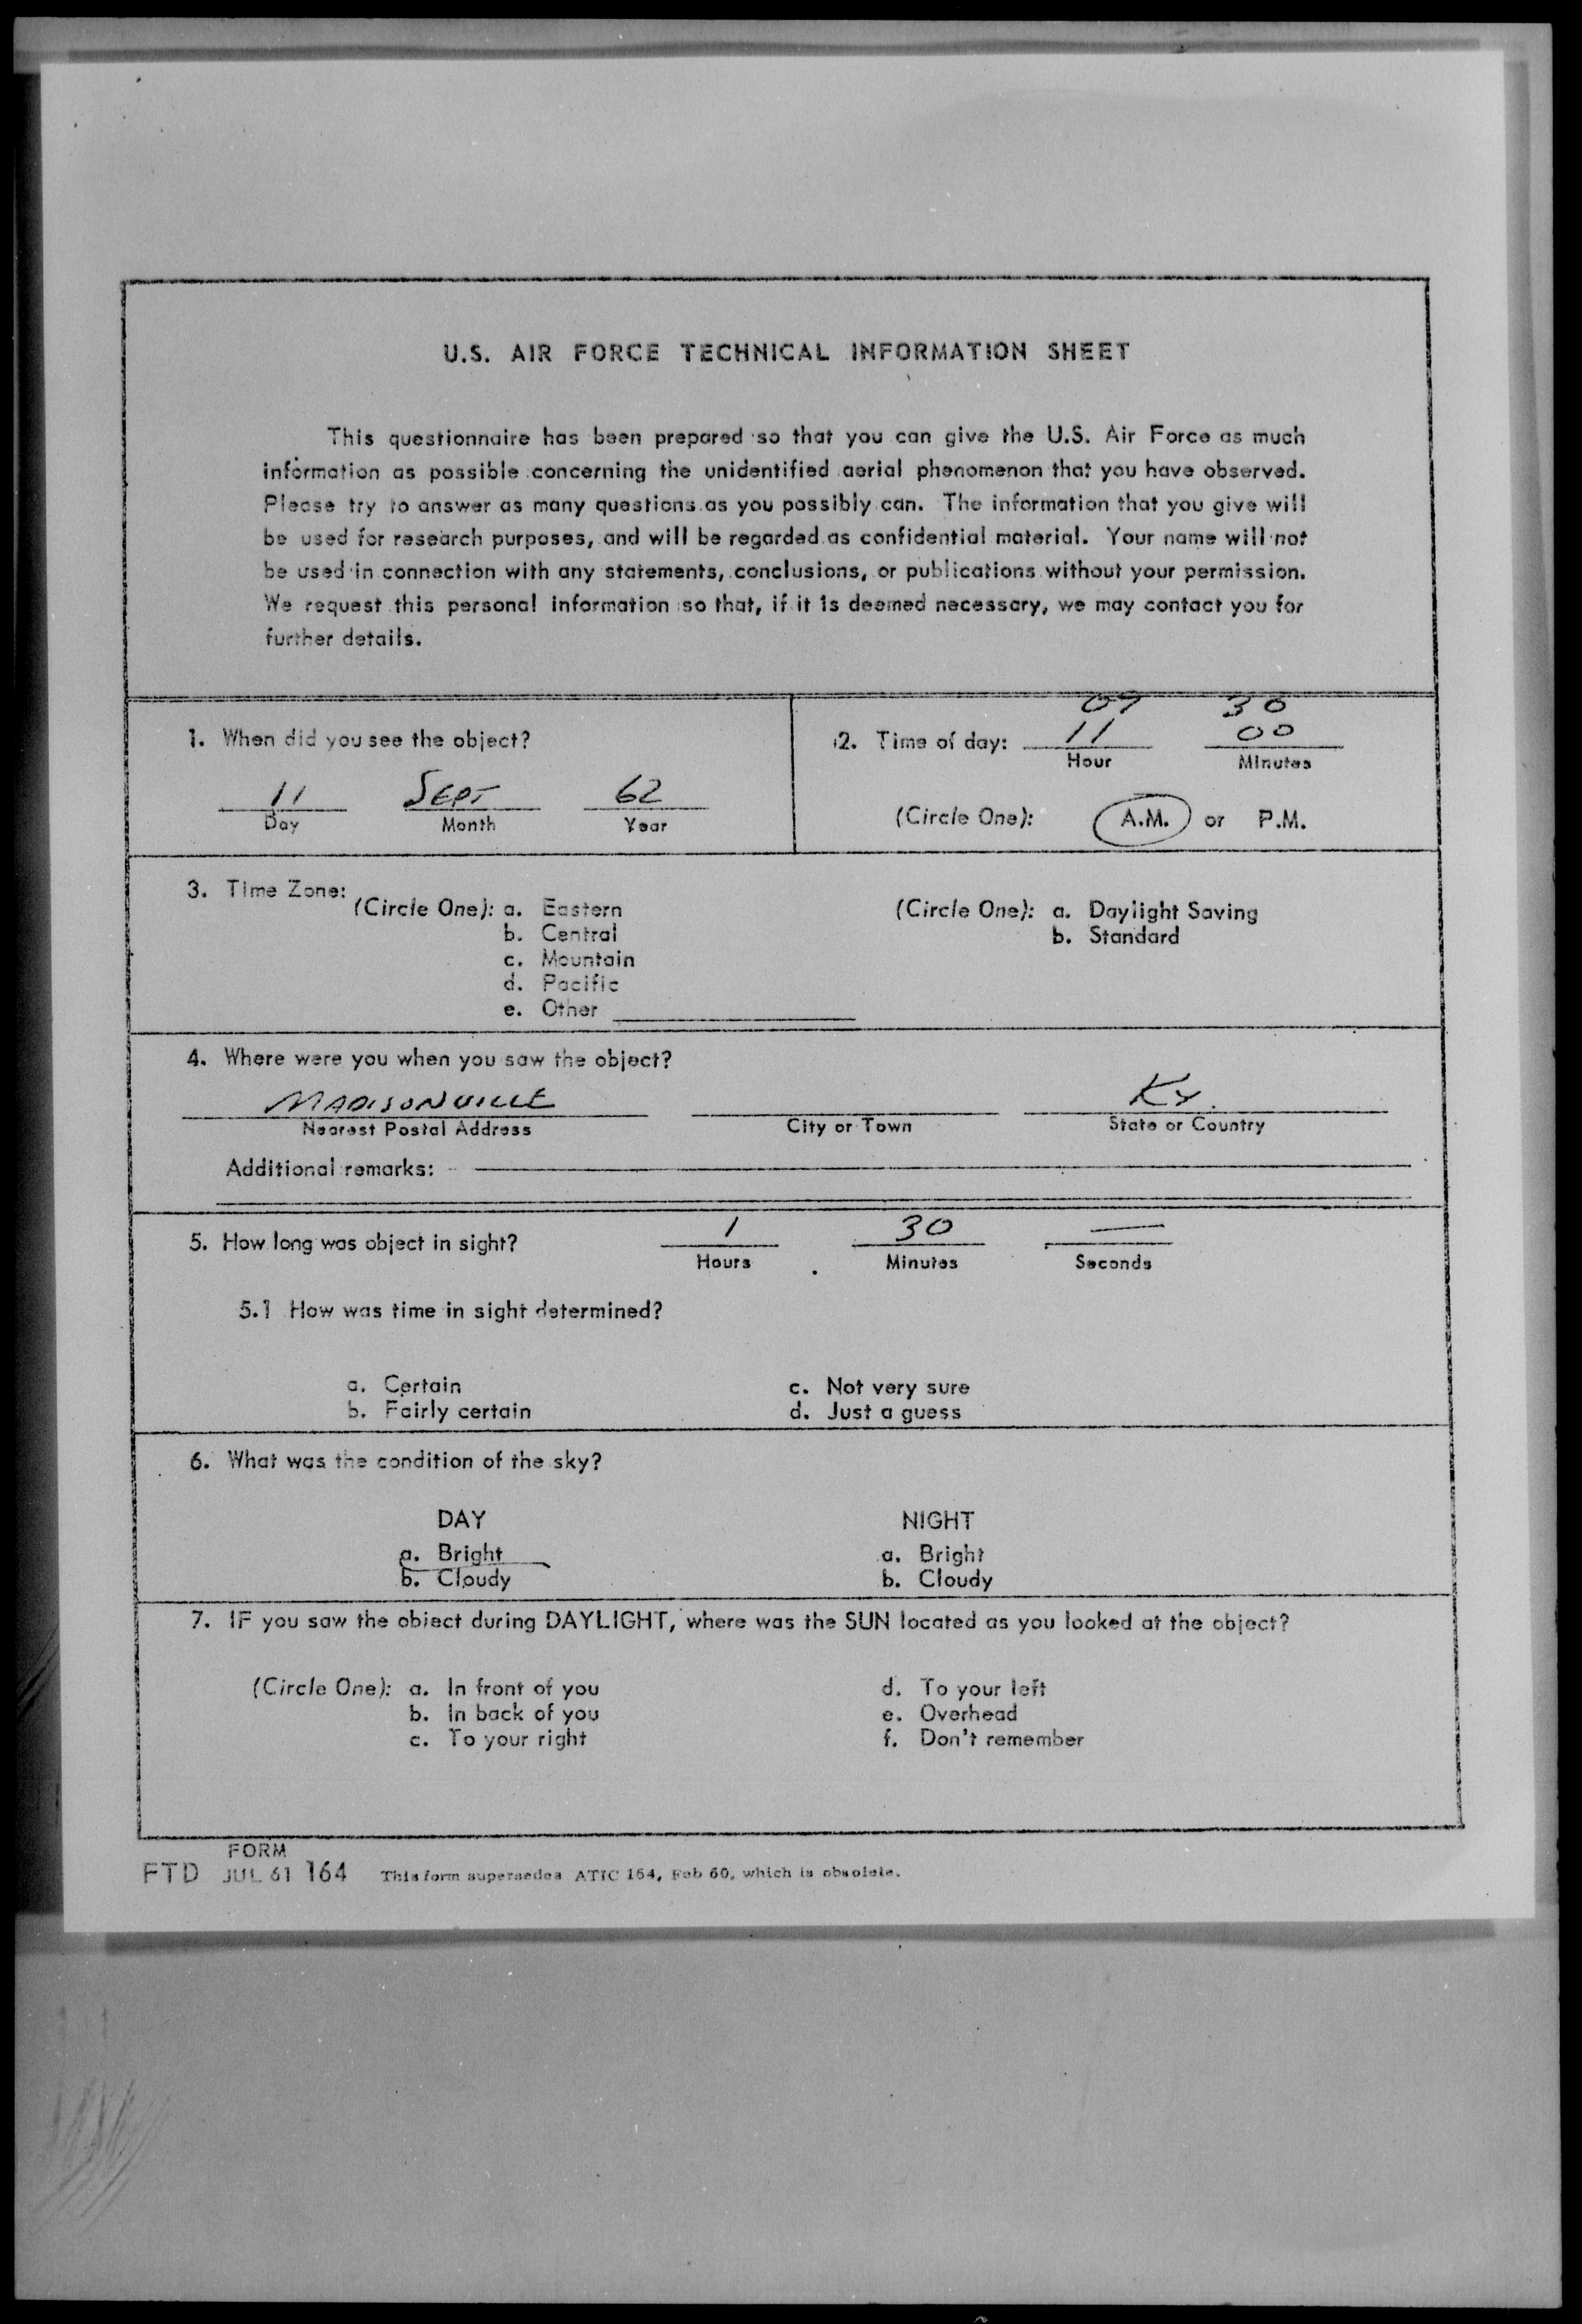 U.S. AIR FORCE TECHNICAL INFORMATION SHEET
This questionnaire has been prepared so that you can give the U.S. Air Force as much
information as possible concerning the unidentified aerial phenomenon that you have observed.
Please try to answer as many questions as you possibly can. The information that you give will
be used for research purposes, and will be regarded as confidential material. Your name will not
be used in connection with any statements, conclusions, or publications without your permission.
We request this personal information so that, if it is deemed necessary, we may contact you for
further details.
1. When did you see the object?
11 SEPT 62
Day Month Year
09 30
2. Time of day: 11 00
Hour Minutes
(Circle One): A.M. or P.M.
3. Time Zone:
(Circle One): a. Eastern
b. Central
c. Mountain
d. Pacific
e. Other
(Circle One): a. Daylight Saving
b. Standard
4. Where were you when you saw the object?
MADISONVILLE KY.
Nearest Postal Address City or Town State or Country
Additional remarks:
5. How long was object in sight? 1 30 —
Hours Minutes Seconds
5.1 How was time in sight determined?
a. Certain c. Not very sure
b. Fairly certain d. Just a guess
6. What was the condition of the sky?
DAY NIGHT
a. Bright a. Bright
b. Cloudy b. Cloudy
7. IF you saw the object during DAYLIGHT, where was the SUN located as you looked at the object?
(Circle One): a. In front of you d. To your left
b. In back of you e. Overhead
c. To your right f. Don't remember
FORM
FTD JUL 61 164 This form supersedes ATIC 164, Feb 60, which is obsolete.